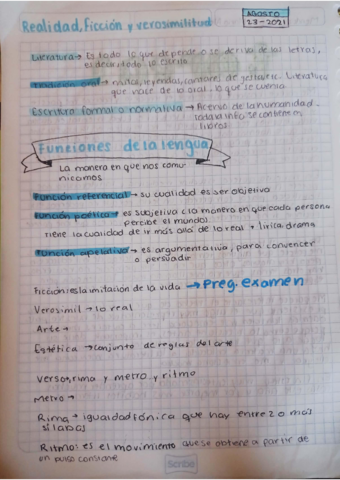 Realidad, Ficción y verosimilitud
AGOSTO
23-2021
Literatura → Es todo lo que depende o se deriva de las letras,
es decir todo lo escrito
Tradición oral → mitos, leyendas, cantare, de gesta etc. Literatura
que nace de lo oral, lo que se cuenta
Escritura formal o normativa → Acervo de la humanidad.
toda la info se contiene en
libros
Funciones de la lengua
La manera en que nos comu
nicamos
Función referencial → su cualidad es ser objetiva
Función poética → es subjetiva (la manera en que cada persona
percibe el mundo)
Tiene la cualidad de ir más allá de lo real + lírica drama
Función apelativa → es argumentativa, para convencer
o persuadir
Ficción: es la imitación de la vida → Preg. examen
Verosimil → lo real
Arte →
Estética → conjunto de reglas del arte
Verso, rima y metro y ritmo
Metro →
Rima → igualdad fónica que hay entre 2 o más
sílabas
Ritmo: es el movimiento que se obtiene a partir de
un pulso constante
Scribe